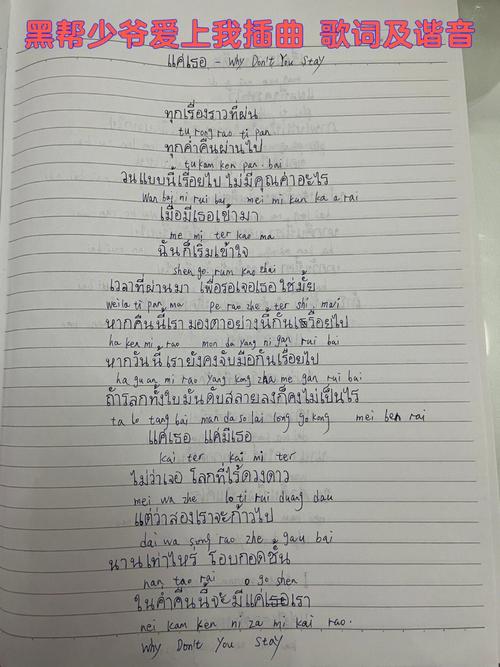 黑帮少爷爱上我插曲 歌词及谐音
แค่เธอ - Why Don't You Stay
ทุกเรื่องราวที่ผ่น
tu rong rao ti pan
ทุกค่ำคืนผ่านไป
tu kam ken pan. bai
วนแบบนี้เรื่อยไป ไม่มีคุณค่าอะไร
Wan bai ni rui bai mei mi kun ka a rai
เมื่อมีเธอเข้ามา
me mi ter kao ma
ฉันก็เริ่มเข้าใจ
shen go rum kao chai
เวลาที่ผ่านมา เพื่อรอเจอเธอใช่มั้ย
weila ti pan ma pe rao zhe ter shi mai
หากคืนนี้เรา มองตาอย่างนี้กันเรื่อยไป
ha ken mi rao mon da yang ni gan rui bai
หากวันนี้เรายังคงจับมือกันเรื่อยไป
ha guan mi rao yang kong zha me gan rui bai
ถ้าโลกทั้งใบมันดับสลายลงก็คงไม่เป็นไร
ta lo tang bai man da so lai long go kong mei ben rai
แค่เธอ แค่มีเธอ
kai ter kai mi ter
ไม่ว่าเจอ โลกที่ไร้ดวงดาว
mei wa zhe lo ti rui duang dau
แต่ว่าสองเราจะก้าวไป
dai wa song rao zhe gau bai
นานเท่าไหร่ โอบกอดชั้น
nan tao rai o go shen
ในค่ำคืนนี้จะมีแค่เธอเรา
nei kam ken ni za mi kai rao.
Why Don't You Stay